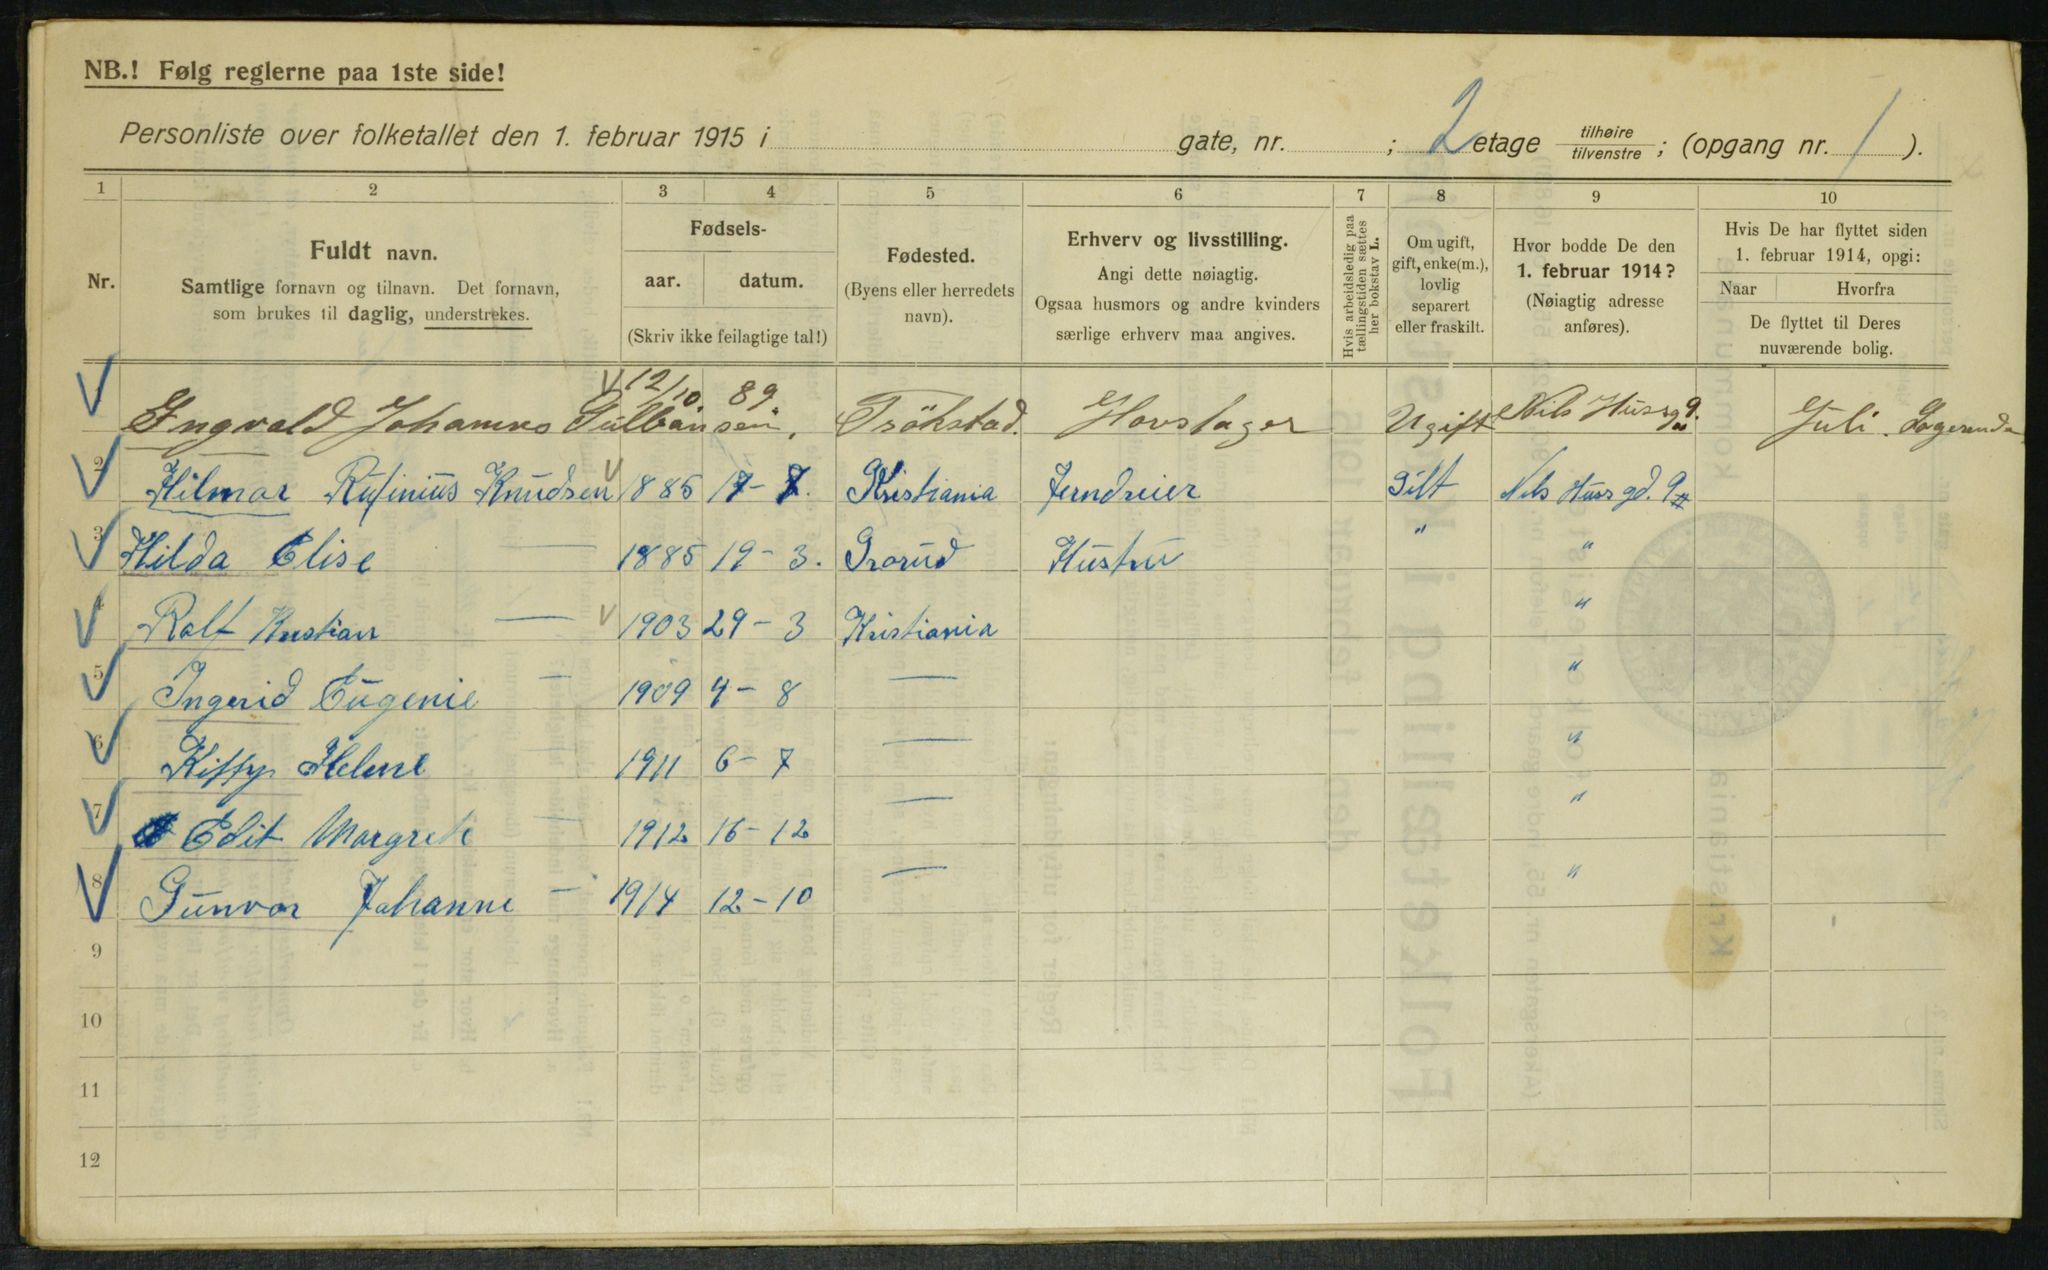 NB.! Følg reglerne paa 1ste side!
Personliste over folketallet den 1. februar 1915 i gate, nr. ; 2 etage tilhøire tilvenstre ; (opgang nr. 1 ).
1 2 3 4 5 6 7 8 9 10
Nr.
Fuldt navn.
Samtlige fornavn og tilnavn. Det fornavn,
som brukes til daglig, understrekes.
Fødsels-
aar. datum.
(Skriv ikke feilagtige tal!)
Fødested.
(Byens eller herredets
navn).
Erhverv og livsstilling.
Angi dette nøiagtig.
Ogsaa husmors og andre kvinders
særlige erhverv maa angives.
Hvis arbeidsledig paa
tællingstiden sættes
her bokstav L.
Om ugift,
gift, enke(m.),
lovlig
separert
eller fraskilt.
Hvor bodde De den
1. februar 1914?
(Nøiagtig adresse
anføres).
Hvis De har flyttet siden
1. februar 1914, opgi:
Naar Hvorfra
De flyttet til Deres
nuværende bolig.
Ingvald Johannes Gulbransen, 12/10 89. Trökstad. Hovslager Ugift Nils Hussgd. 9 Juli.
2 Hilmar Rufinius Knudsen 1885 17-7. Kristiania Jerndreier Gift Nils Huss gd. 9
3 Hilda Elise — 1885 19-3. Grorud Hustru " "
4 Rolf Kristian — 1903 29-3 Kristiania "
5 Ingerid Eugenie — 1909 4-8 — "
6 Kiffy Helene 1911 6-7 — "
7 Edit Margrete — 1912 16-12 — "
8 Gunvor Johanne — 1914 12-10 — "
9
10
11
12